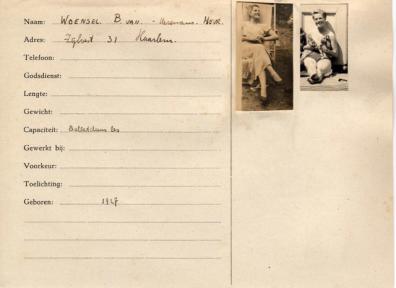 Naam: WOENSEL B. VAN.
Adres: 31 Haarlem.
Telefoon:
Godsdienst:
Lengte:
Gewicht:
Capaciteit: les
Gewerkt bij:
Voorkeur:
Toelichting:
Geboren: 1927